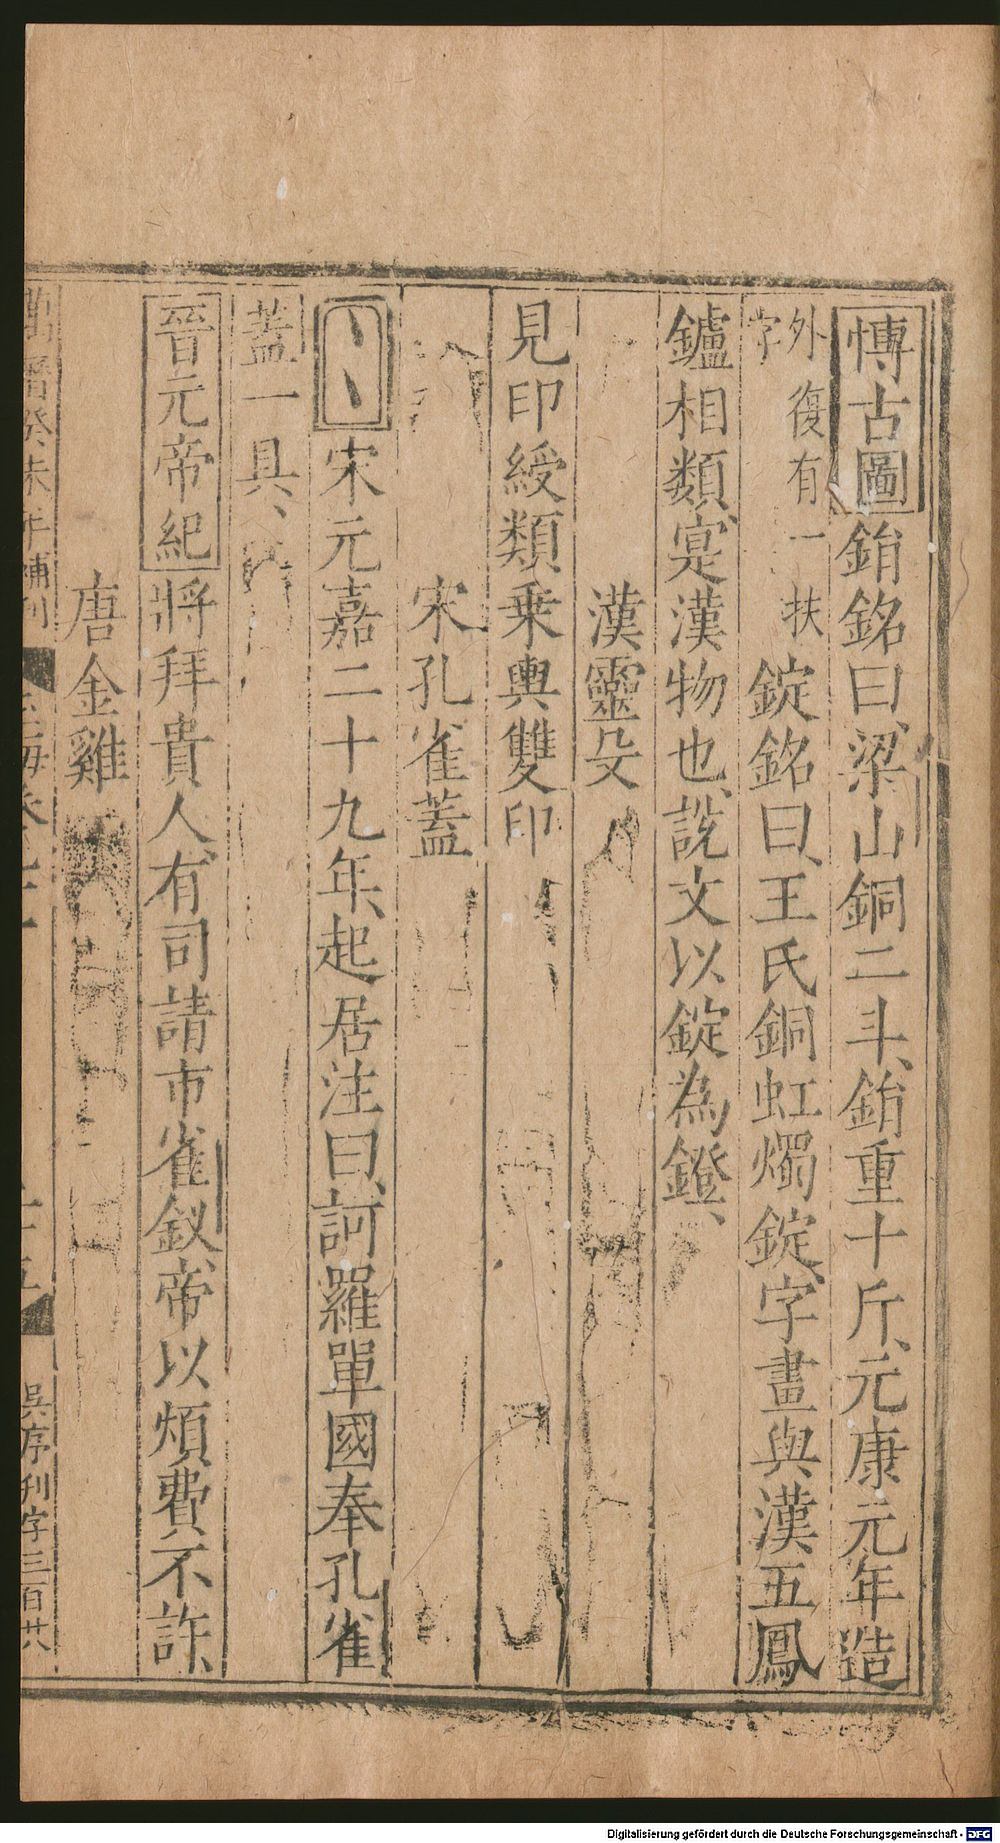 博古圖銷銘曰梁山銅二斗銷重十斤元康元年造
外復有一扶字錠銘曰王氏銅虹燭錠字畫與漢五鳳
鑪相類寔漢物也説文以錠為鐙
漢靈殳
見印綬類乗輿雙印
宋孔雀蓋
宋元嘉二十九年起居注曰訶羅單國奉孔雀
蓋一具
晉元帝紀將拜貴人有司請市雀釵帝以煩費不許
唐金雞
萬曆癸未年補刊
玉海卷
十五
吳序刊字三百廿八
Digitalisierung gefördert durch die Deutsche Forschungsgemeinschaft - DFG